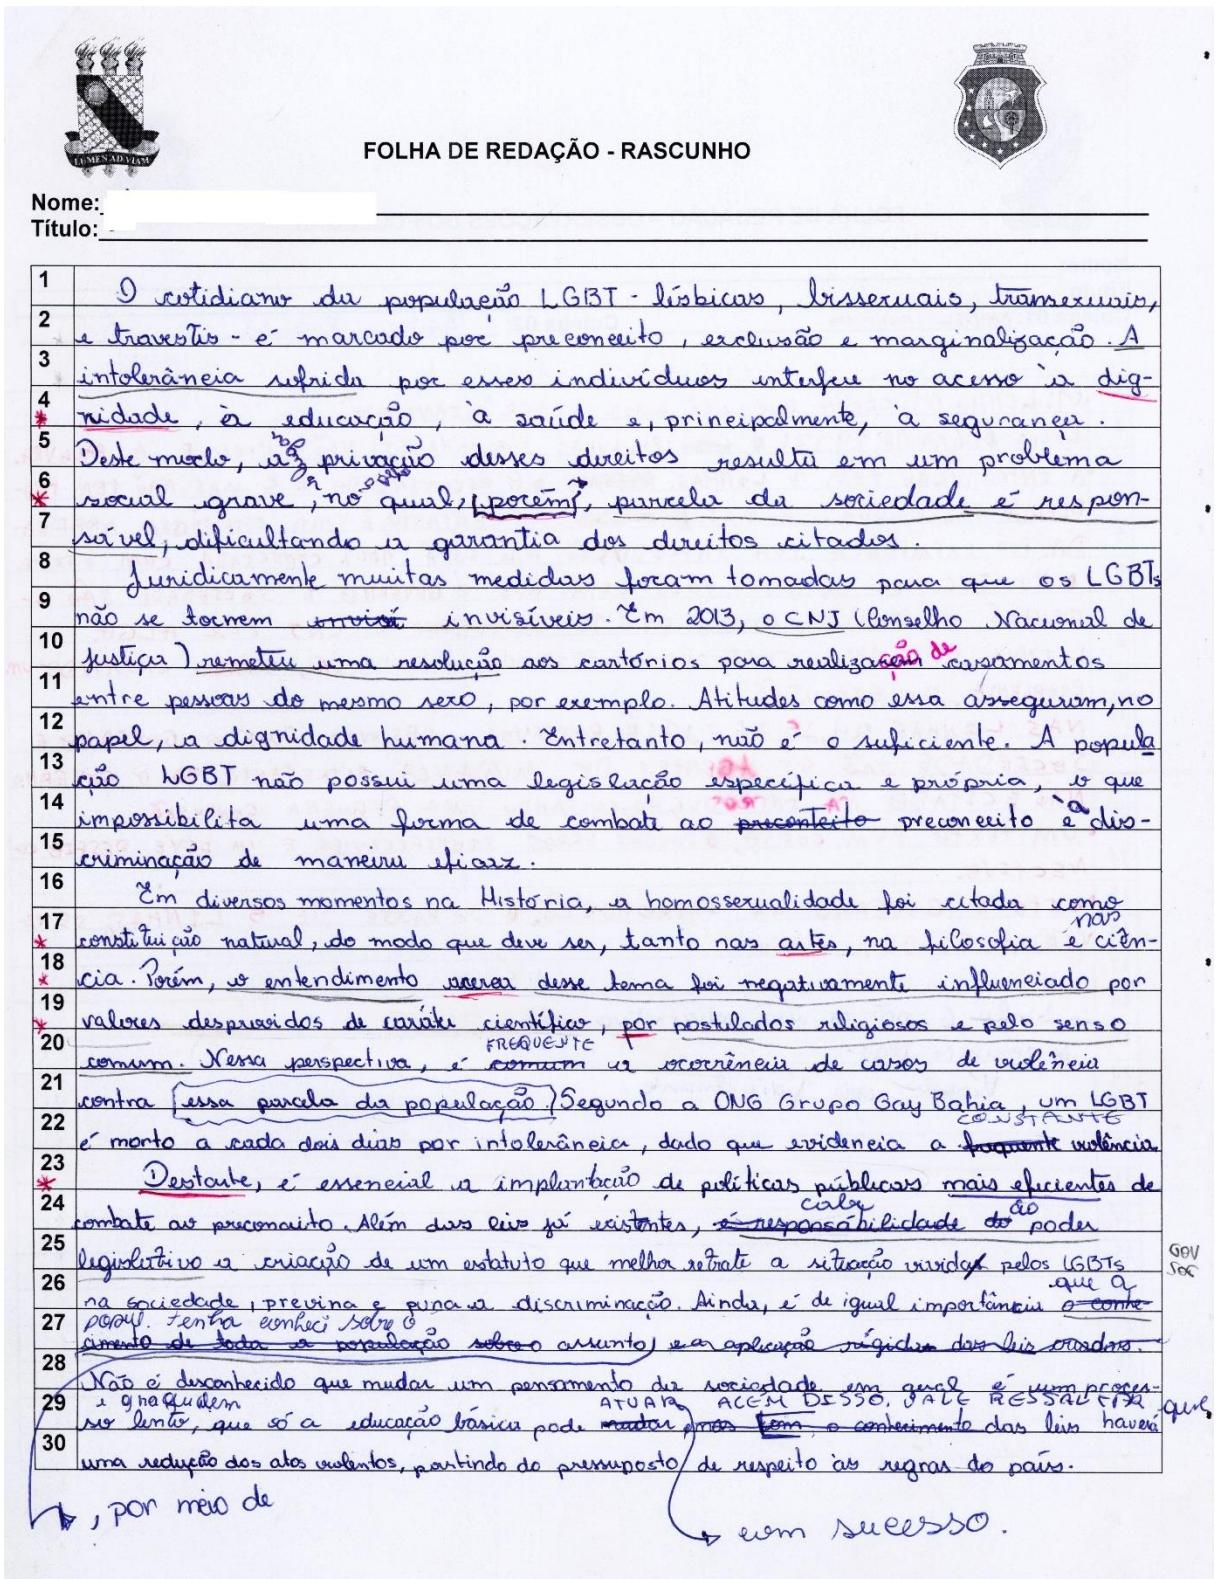 LUMEN AD VIAM
FOLHA DE REDAÇÃO - RASCUNHO
Nome:
Título:
1 O cotidiano da população LGBT - lésbicas, bissexuais, transexuais,
2 e travestis - é marcado por preconceito, exclusão e marginalização. A
3 intolerância sofrida por esses indivíduos interfere no acesso à dig-
4 nidade, à educação, à saúde e, principalmente, à segurança.
5 Deste modo, a privação desses direitos resulta em um problema
6 social grave, no qual, [porém], parcela da sociedade é respon-
7 sável, dificultando a garantia dos direitos citados.
8 Juridicamente muitas medidas foram tomadas para que os LGBTs
9 não se tornem invisíveis. Em 2013, o CNJ (Conselho Nacional de
10 Justiça) remeteu uma resolução aos cartórios para realização de casamentos
11 entre pessoas do mesmo sexo, por exemplo. Atitudes como essa asseguram, no
12 papel, a dignidade humana. Entretanto, não é o suficiente. A popula
13 ção LGBT não possui uma legislação específica e própria, o que
14 impossibilita uma forma de combate ao preconceito preconceito e à dis-
15 criminação de maneira eficaz.
16 Em diversos momentos na História, a homossexualidade foi citada como
nas
17 constituição natural, do modo que deve ser, tanto nas artes, na filosofia e ciên-
18 cia. Porém, o entendimento acerca desse tema foi negativamente influenciado por
19 valores desprovidos de caráter científico, por postulados religiosos e pelo senso
FREQUENTE
20 comum. Nessa perspectiva, é comum a ocorrência de casos de violência
21 contra [essa parcela da população] Segundo a ONG Grupo Gay Bahia, um LGBT
CONSTANTE
22 é morto a cada dois dias por intolerância, dado que evidencia a frequente violência
23 Destarte, é essencial a implantação de políticas públicas mais eficientes de
cabe ao
24 combate ao preconceito. Além das leis já existentes, é responsabilidade do poder
25 legislativo a criação de um estatuto que melhor retrate a situação vivida pelos LGBTs
GOV
SOC
que a
26 na sociedade, previna e puna a discriminação. Ainda, é de igual importância o conhe-
popul. tenha conheci sobre o
27 cimento de toda a população sobre o assunto, e a aplicação rígida das leis criadas.
28 Não é desconhecido que mudar um pensamento da sociedade em geral é um proces-
e gradual ATUAR ALÉM DISSO, VALE RESSALTAR que,
29 so lento, que só a educação básica pode mudar, mas com o conhecimento das leis haverá
30 uma redução dos atos violentos, partindo do pressuposto de respeito às regras do país.
, por meio de
com sucesso.